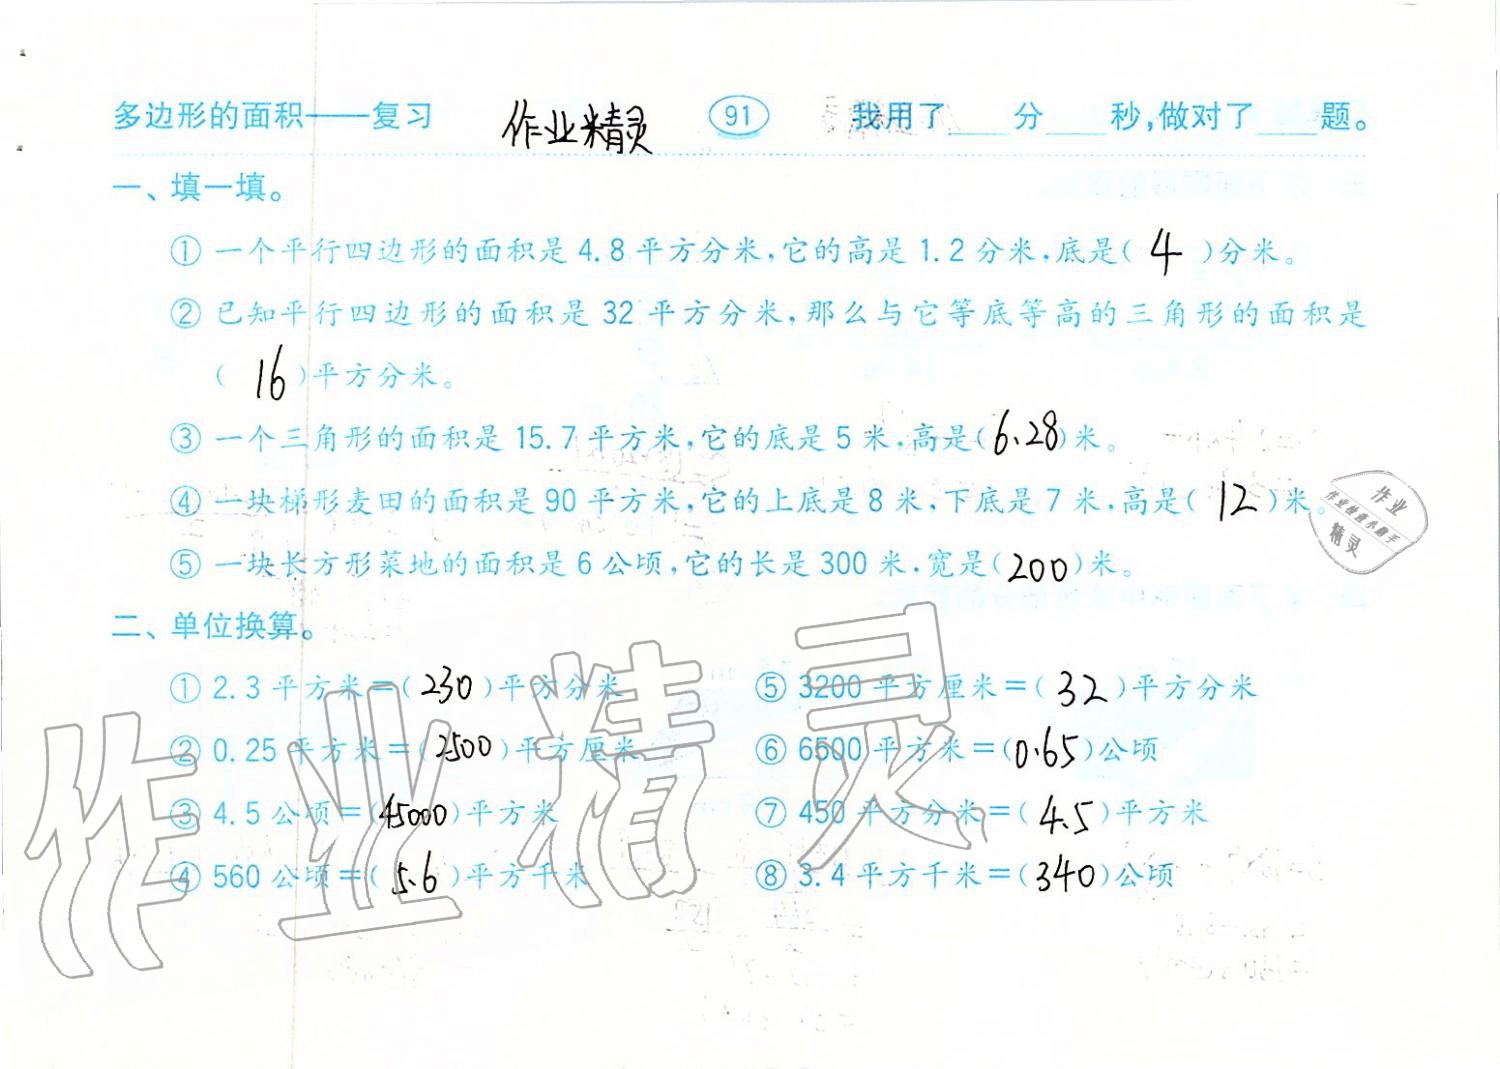 多边形的面积——复习 作业精灵 91 我用了____分____秒,做对了____题。
一、填一填。
① 一个平行四边形的面积是4.8平方分米,它的高是1.2分米,底是( 4 )分米。
② 已知平行四边形的面积是32平方分米,那么与它等底等高的三角形的面积是
( 16 )平方分米。
③ 一个三角形的面积是15.7平方米,它的底是5米,高是(6.28)米。
④ 一块梯形麦田的面积是90平方米,它的上底是8米,下底是7米,高是( 12 )米。
作业
作业检查小助手
精灵
⑤ 一块长方形菜地的面积是6公顷,它的长是300米,宽是(200)米。
二、单位换算。
① 2.3平方米=(230)平方分米 ⑤ 3200平方厘米=(32)平方分米
② 0.25平方米=(2500)平方厘米 ⑥ 6500平方米=(0.65)公顷
③ 4.5公顷=(45000)平方米 ⑦ 450平方分米=(4.5)平方米
④ 560公顷=(5.6)平方千米 ⑧ 3.4平方千米=(340)公顷
作业精灵